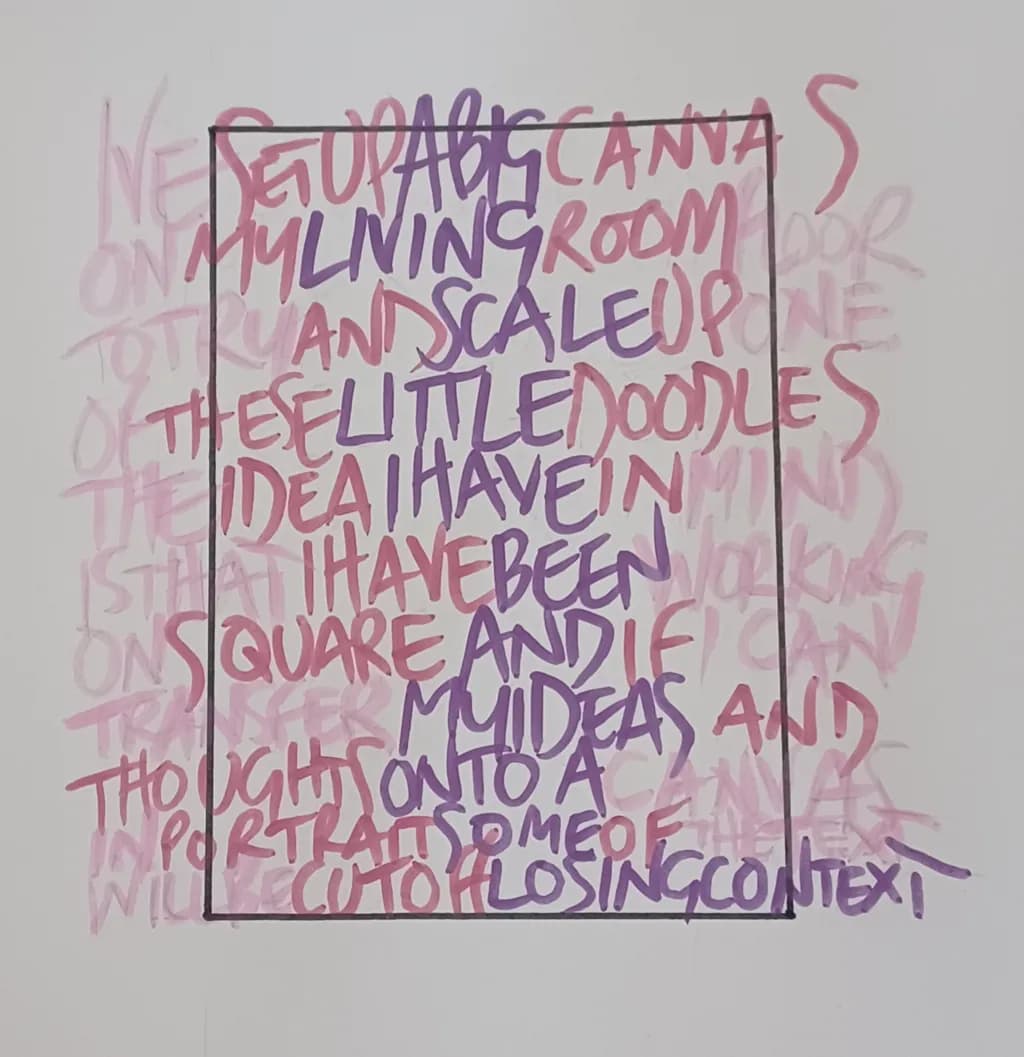 I'VE SET UP A BIG CANVAS
ON MY LIVING ROOM FLOOR
TO TRY AND SCALE UP ONE
OF THESE LITTLE DOODLES
THE IDEA I HAVE IN MIND
IS THAT I HAVE BEEN WORKING
ON SQUARE AND IF I CAN
TRANSFER MY IDEAS AND
THOUGHTS ONTO A CANVAS
IN PORTRAIT SOME OF THE TEXT
WILL BE CUT OFF LOSING CONTEXT